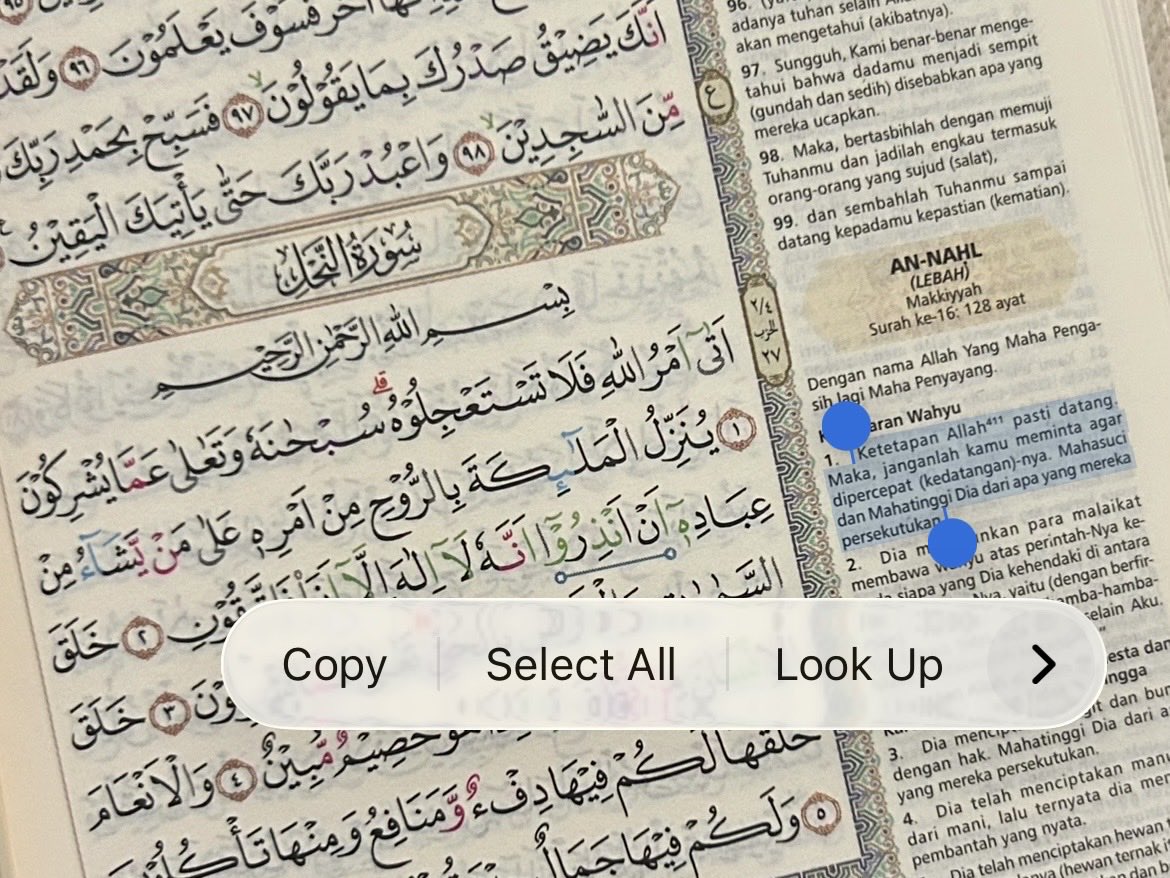 اَنَّكَ يَضِيْقُ صَدْرُكَ بِمَا يَقُوْلُوْنَ ۙ ٩٧ فَسَبِّحْ بِحَمْدِ رَبِّكَ
مِّنَ السّٰجِدِيْنَ ۙ ٩٨ وَاعْبُدْ رَبَّكَ حَتّٰى يَأْتِيَكَ الْيَقِيْنُ
سُوْرَةُ النَّحْلِ
بِسْمِ اللّٰهِ الرَّحْمٰنِ الرَّحِيْمِ
اَتٰٓى اَمْرُ اللّٰهِ فَلَا تَسْتَعْجِلُوْهُ ۗ سُبْحٰنَهٗ وَتَعٰلٰى عَمَّا يُشْرِكُوْنَ
١ يُنَزِّلُ الْمَلٰۤىِٕكَةَ بِالرُّوْحِ مِنْ اَمْرِهٖ عَلٰى مَنْ يَّشَاۤءُ مِنْ
عِبَادِهٖٓ اَنْ اَنْذِرُوْٓا اَنَّهٗ لَآ اِلٰهَ اِلَّآ اَنَا۠ فَاتَّقُوْنِ ٢ خَلَقَ
٣ خَلَقَ
مُّبِيْنٌ ٤ وَالْاَنْعَامَ
خَلَقَهَا لَكُمْ فِيْهَا دِفْءٌ وَّمَنَافِعُ وَمِنْهَا تَأْكُلُوْنَ
٥ وَلَكُمْ فِيْهَا جَمَالٌ
ع
٢/٤
الحزب
٢٧
adanya tuhan selain
akan mengetahui (akibatnya).
97. Sungguh, Kami benar-benar menge-
tahui bahwa dadamu menjadi sempit
(gundah dan sedih) disebabkan apa yang
mereka ucapkan.
98. Maka, bertasbihlah dengan memuji
Tuhanmu dan jadilah engkau termasuk
orang-orang yang sujud (salat),
99. dan sembahlah Tuhanmu sampai
datang kepadamu kepastian (kematian).
AN-NAHL
(LEBAH)
Makkiyyah
Surah ke-16: 128 ayat
Dengan nama Allah Yang Maha Penga-
sih lagi Maha Penyayang.
Wahyu
1. Ketetapan Allah⁴¹¹ pasti datang.
Maka, janganlah kamu meminta agar
dipercepat (kedatangan)-nya. Mahasuci
dan Mahatinggi Dia dari apa yang mereka
persekutukan.
2. Dia para malaikat
membawa wahyu atas perintah-Nya ke-
siapa yang Dia kehendaki di antara
yaitu (dengan berfir-
selain Aku.
3. Dia
dengan hak. Mahatinggi Dia dari a
yang mereka persekutukan.
4. Dia telah menciptakan manu
dari mani, lalu ternyata dia me
pembantah yang nyata.
Dia telah menciptakan hewan
(hewan ternak
Copy
Select All
Look Up